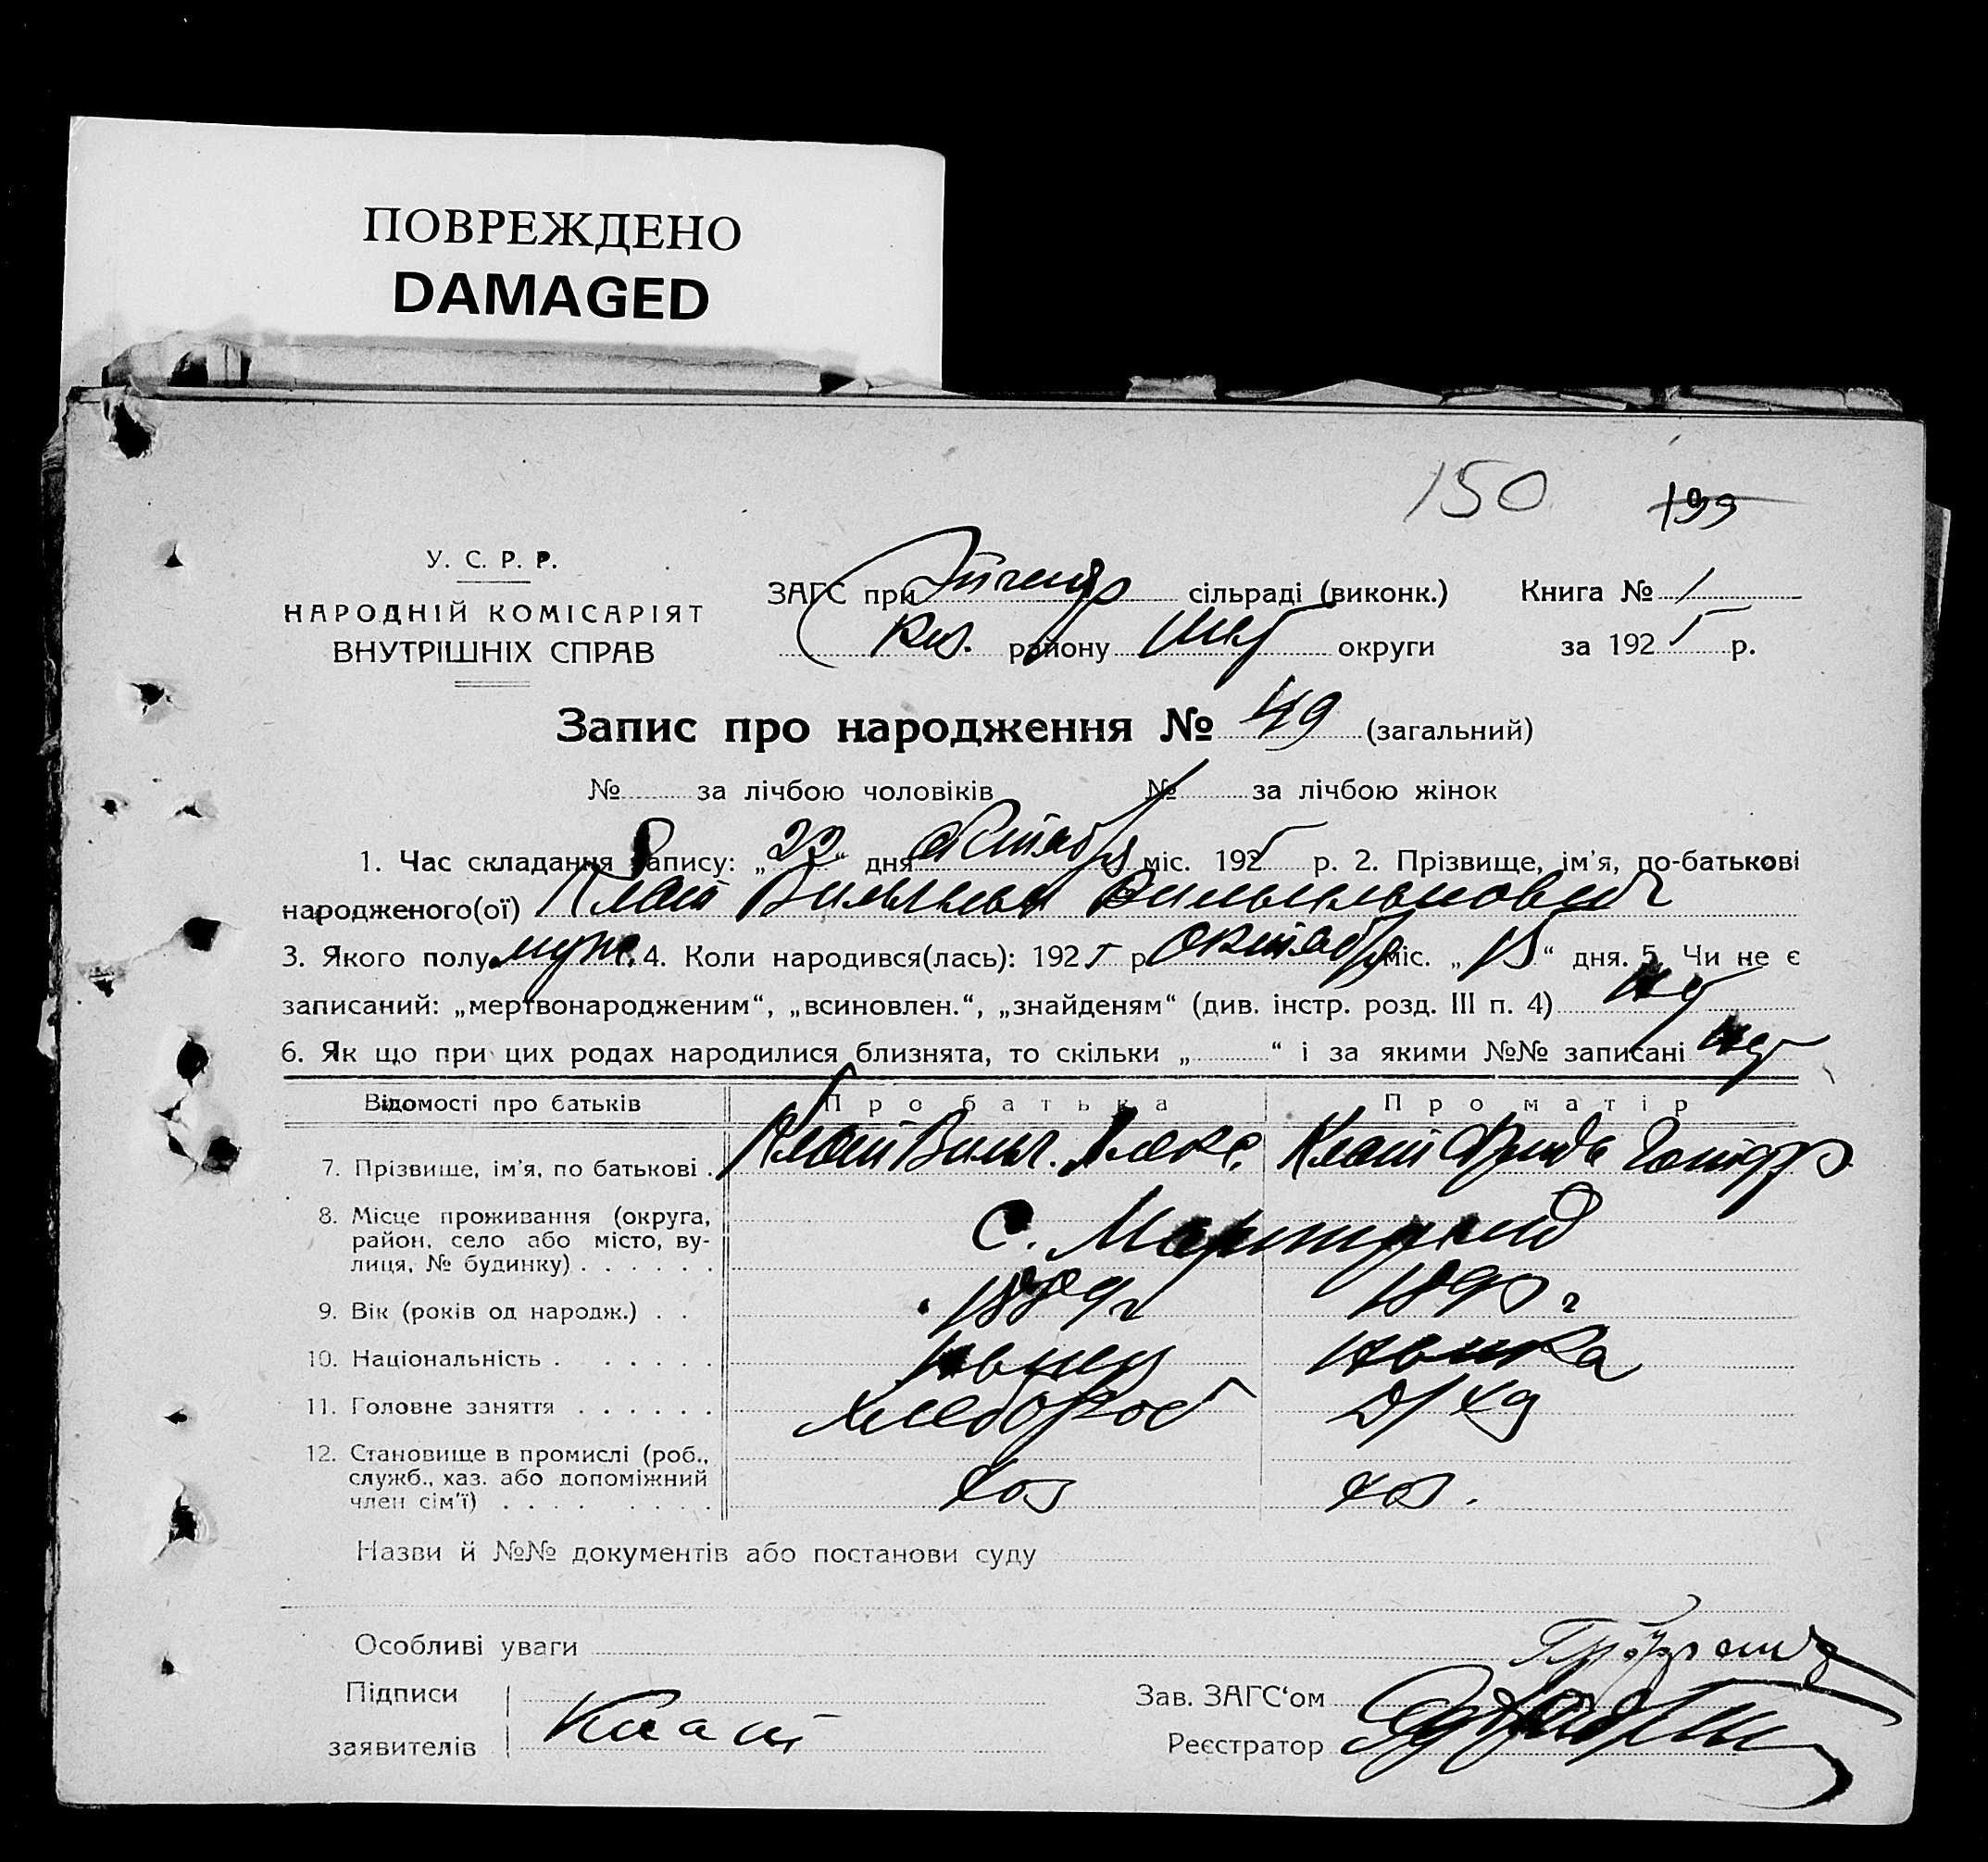 ПОВРЕЖДЕНО
DAMAGED
150 199
У. С. Р. Р.
НАРОДНІЙ КОМІСАРІЯТ
ВНУТРІШНІХ СПРАВ
ЗАГС при сільраді (виконк.) Книга № 1
району округи за 1925 р.
Запис про народження № 49 (загальний)
№ за лічбою чоловіків № за лічбою жінок
1. Час складання запису: „22“ дня октября міс. 1925 р. 2. Прізвище, ім'я, по-батькові
народженого(ої) Клат Вильгельм Вильгельмович
3. Якого полу муж. 4. Коли народився(лась): 1925 р октября міс. „15“ дня. 5. Чи не є
записаний: „мертвонародженим“, „всиновлен.“, „знайденям“ (див. інстр. розд. III п. 4) нет
6. Як що при цих родах народилися близнята, то скільки „ “ і за якими №№ записані нет
Відомості про батьків Про батька Про матір
7. Прізвище, ім'я, по батькові . Клат Вильг. Клат Фрида
8. Місце проживання (округа,
район, село або місто, ву-
лиця, № будинку) . . . . . . С.
9. Вік (років од народж.) . . 1889 г
10. Національність . . . . . . . немец немка
11. Головне заняття . . . . . . Хлебороб Д/хоз
12. Становище в промислі (роб.,
служб., хаз. або допоміжний
член сім'ї) . . . . . . . . . хоз хоз.
Назви й №№ документів або постанови суду
Особливі уваги
Підписи Зав. ЗАГС‘ом
заявителів Клат Реєстратор